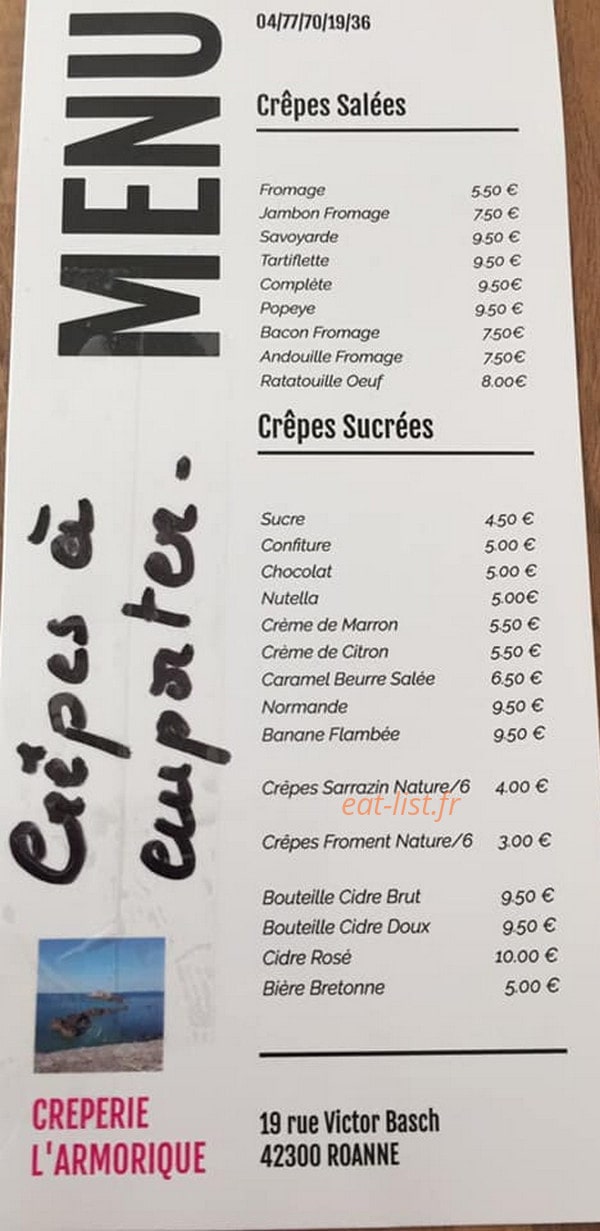 MENU
Crêpes à
emporter.
04/77/70/19/36
Crêpes Salées
Fromage 5.50 €
Jambon Fromage 7.50 €
Savoyarde 9.50 €
Tartiflette 9.50 €
Complète 9.50€
Popeye 9.50 €
Bacon Fromage 7.50€
Andouille Fromage 7.50€
Ratatouille Oeuf 8.00€
Crêpes Sucrées
Sucre 4.50 €
Confiture 5.00 €
Chocolat 5.00 €
Nutella 5.00€
Crème de Marron 5.50 €
Crème de Citron 5.50 €
Caramel Beurre Salée 6.50 €
Normande 9.50 €
Banane Flambée 9.50 €
Crêpes Sarrazin Nature/6 4.00 €
eat-list.fr
Crêpes Froment Nature/6 3.00 €
Bouteille Cidre Brut 9.50 €
Bouteille Cidre Doux 9.50 €
Cidre Rosé 10.00 €
Bière Bretonne 5.00 €
CREPERIE
L'ARMORIQUE
19 rue Victor Basch
42300 ROANNE